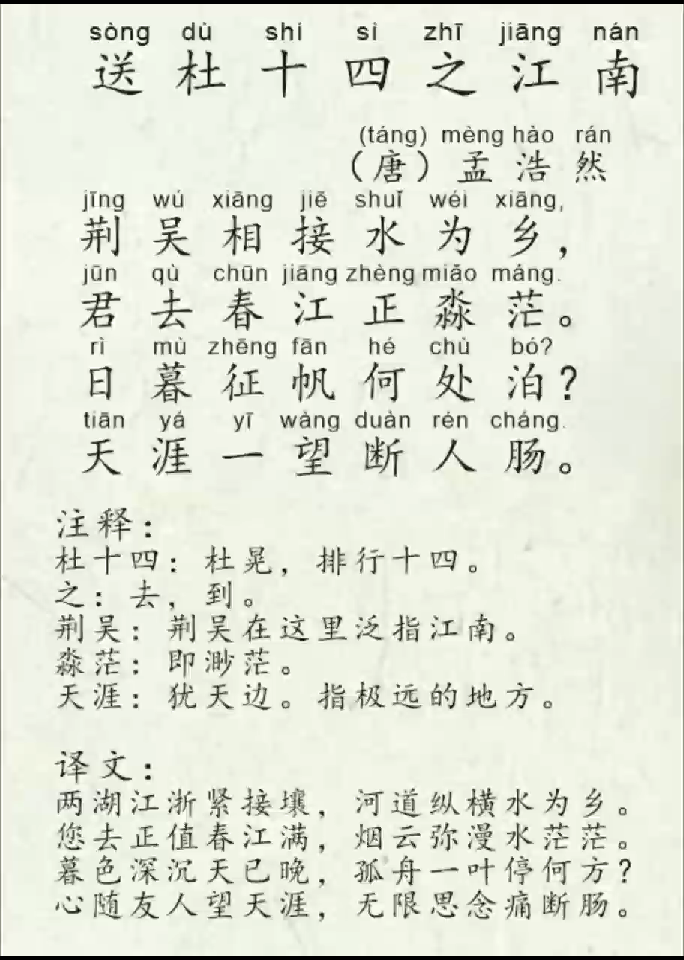 sòng dù shí sì zhī jiāng nán
送杜十四之江南
(táng) mèng hào rán
（唐）孟浩然
jīng wú xiāng jiē shuǐ wéi xiāng,
荆吴相接水为乡，
jūn qù chūn jiāng zhèng miǎo máng.
君去春江正淼茫。
rì mù zhēng fān hé chù bó?
日暮征帆何处泊？
tiān yá yī wàng duàn rén cháng.
天涯一望断人肠。
注释：
杜十四：杜晃，排行十四。
之：去，到。
荆吴：荆吴在这里泛指江南。
淼茫：即渺茫。
天涯：犹天边。指极远的地方。
译文：
两湖江浙紧接壤，河道纵横水为乡。
您去正值春江满，烟云弥漫水茫茫。
暮色深沉天已晚，孤舟一叶停何方？
心随友人望天涯，无限思念痛断肠。